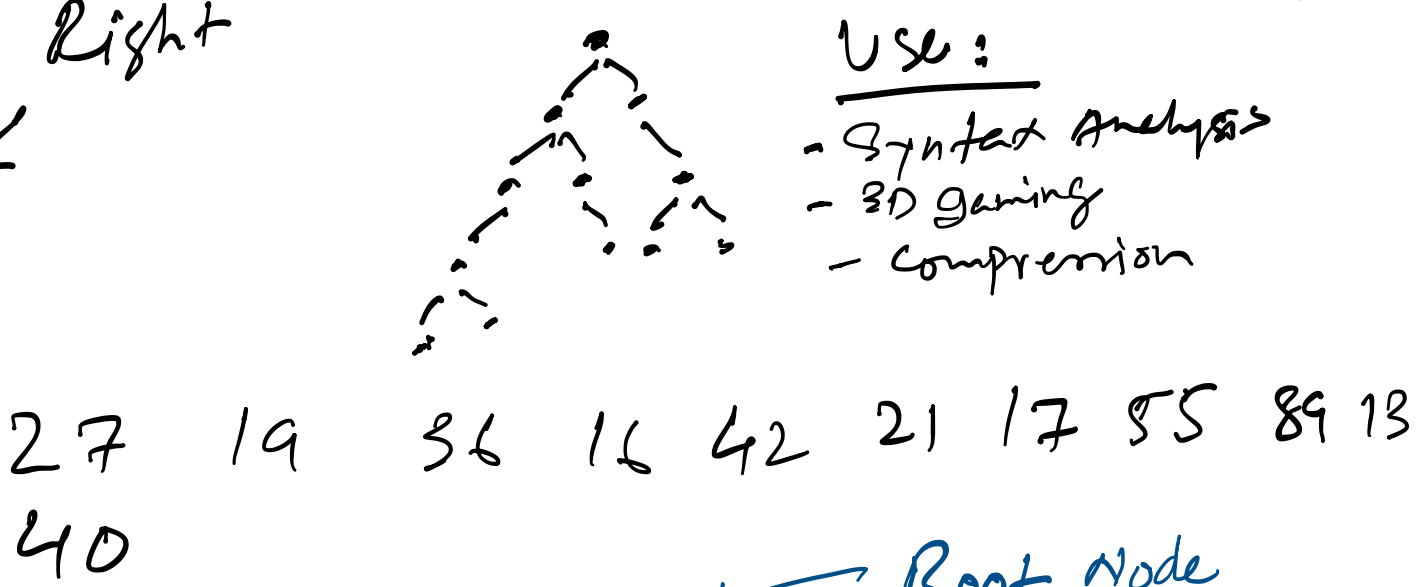 Right
Use:
- Syntax Analysis
- 3D gaming
- Compression
27 19 36 16 42 21 17 55 89 13
40
Root Node